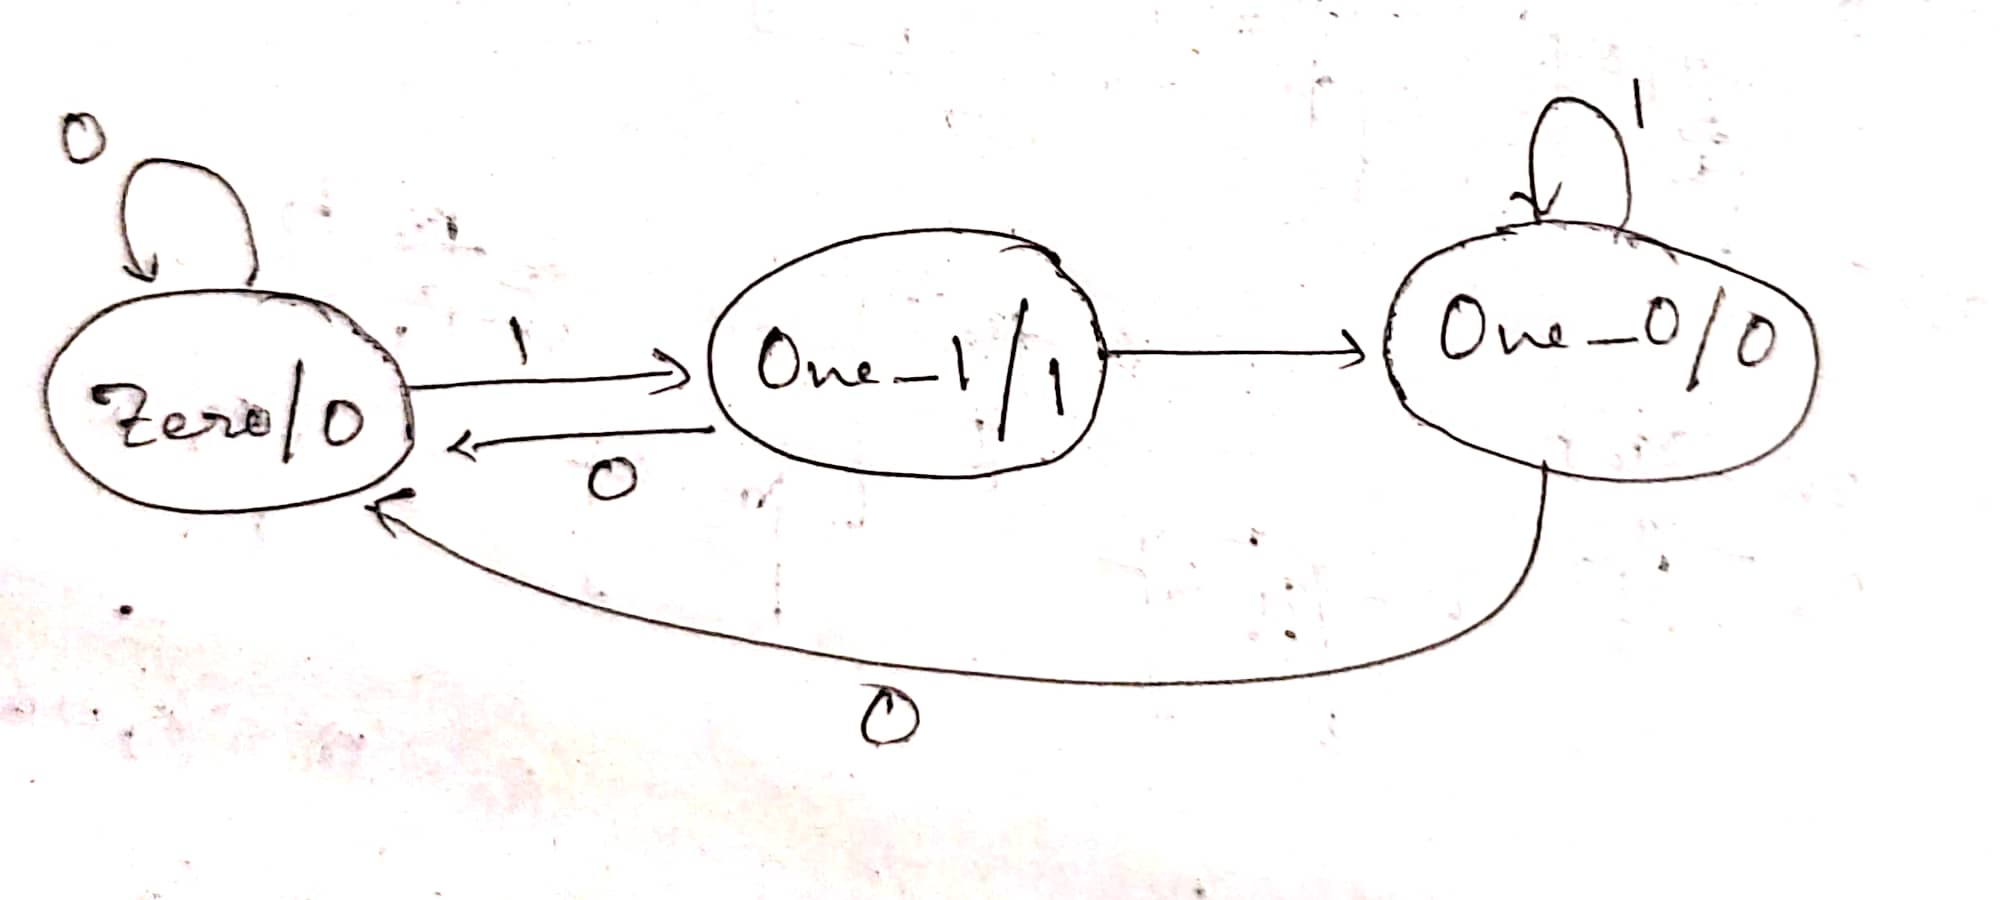 0
1
1
Zero/0
One_1/1
One_0/0
0
0